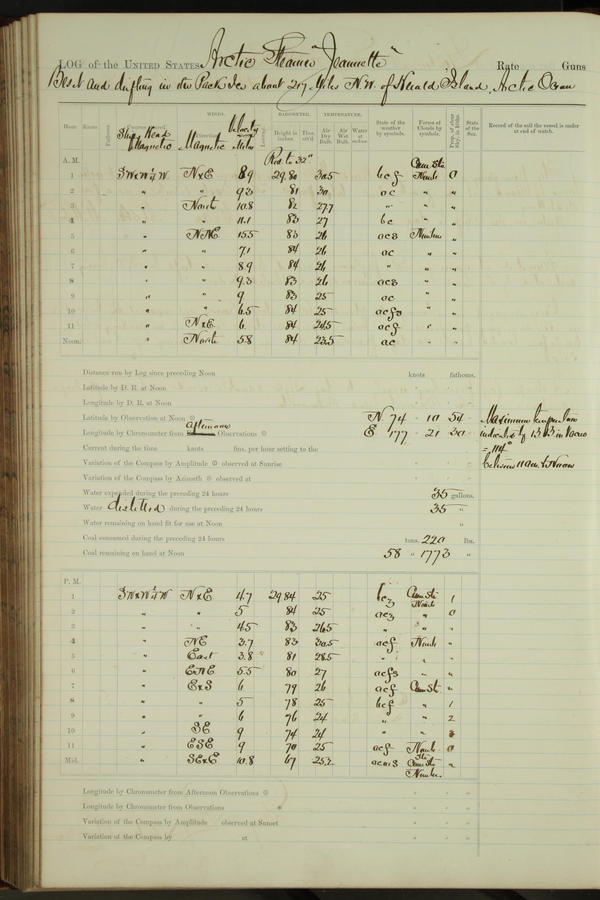 LOG of the UNITED STATES Arctic Steamer "Jeannette" Rate Guns
Beset and drifting in the Pack Ice about 217 Miles N.W. of Herald Island, Arctic Ocean
WINDS. BAROMETER. TEMPERATURE.
Hour Knots Fathoms Ship's Head Magnetic Magnetic Velocity Miles Height in inches Ther. att'd Air Dry Bulb. Air Wet Bulb. Water at Surface State of the weather by symbols. Forms of Clouds by symbols. Prop. of clear Sky, in 10ths. State of the Sea. Record of the sail the vessel is under at end of watch.
A. M. Red. to 32° Cum Sti
1 SWxW¼W NxE 8.9 29.80 30.5 bcf Nimb 0
2 " " 9.3 81 30 oc " "
3 " North 10.8 82 27.7 " " "
4 " " 11.1 83 27 bc " "
5 " NNE 15.5 83 26 ocs Nimbus "
6 " " 7.1 84 26 oc " "
7 " " 8.9 84 26 " " "
8 " " 9.3 83 26 ocs " "
9 " " 9 83 25 oc " "
10 " " 6.5 84 25 ocfs " "
11 " NxE 6 84 24.5 ocf " "
Noon. " North 5.8 84 23.5 oc "
Distance run by Log since preceding Noon knots fathoms.
Latitude by D. R. at Noon
Longitude by D. R. at Noon
Latitude by Observation at Noon N 74 10 54 Maximum temperature
Longitude by Chronometer from afternoon Observations E 177 21 30 indicated by in vacuo
Current during the time knots fms. per hour setting to the = 114°
Variation of the Compass by Amplitude observed at Sunrise between 11am & Noon
Variation of the Compass by Azimuth observed at
Water expended during the preceding 24 hours 35 gallons.
Water distilled during the preceding 24 hours 35 "
Water remaining on hand fit for use at Noon "
Coal consumed during the preceding 24 hours tons, 220 lbs.
Coal remaining on hand at Noon 58 " 1773 "
P. M.
1 SWxW¼W NxE 4.7 29.84 25 bcz Cum Sti Nimb 1
2 " " 5 84 25 ocz " 0
3 " " 4.5 83 26.5 " " "
4 " NE 3.7 83 30.5 ocf Nimb "
5 " East 3.8 81 28.5 " " "
6 " ENE 5.5 80 27 ocfs " "
7 " ExS 6 79 26 ocf Cum Sti "
8 " " 5 78 25 bcf " 1
9 " " 6 76 24 " " 2
10 " SE 9 74 24 " " 3
11 " ESE 9 70 25 ocf Nimb 0
Mid. " SExE 10.8 67 25.2 Sti Cum Sti "
Nimbus
Longitude by Chronometer from Afternoon Observations
Longitude by Chronometer from Observations
Variation of the Compass by Amplitude observed at Sunset
Variation of the Compass by at